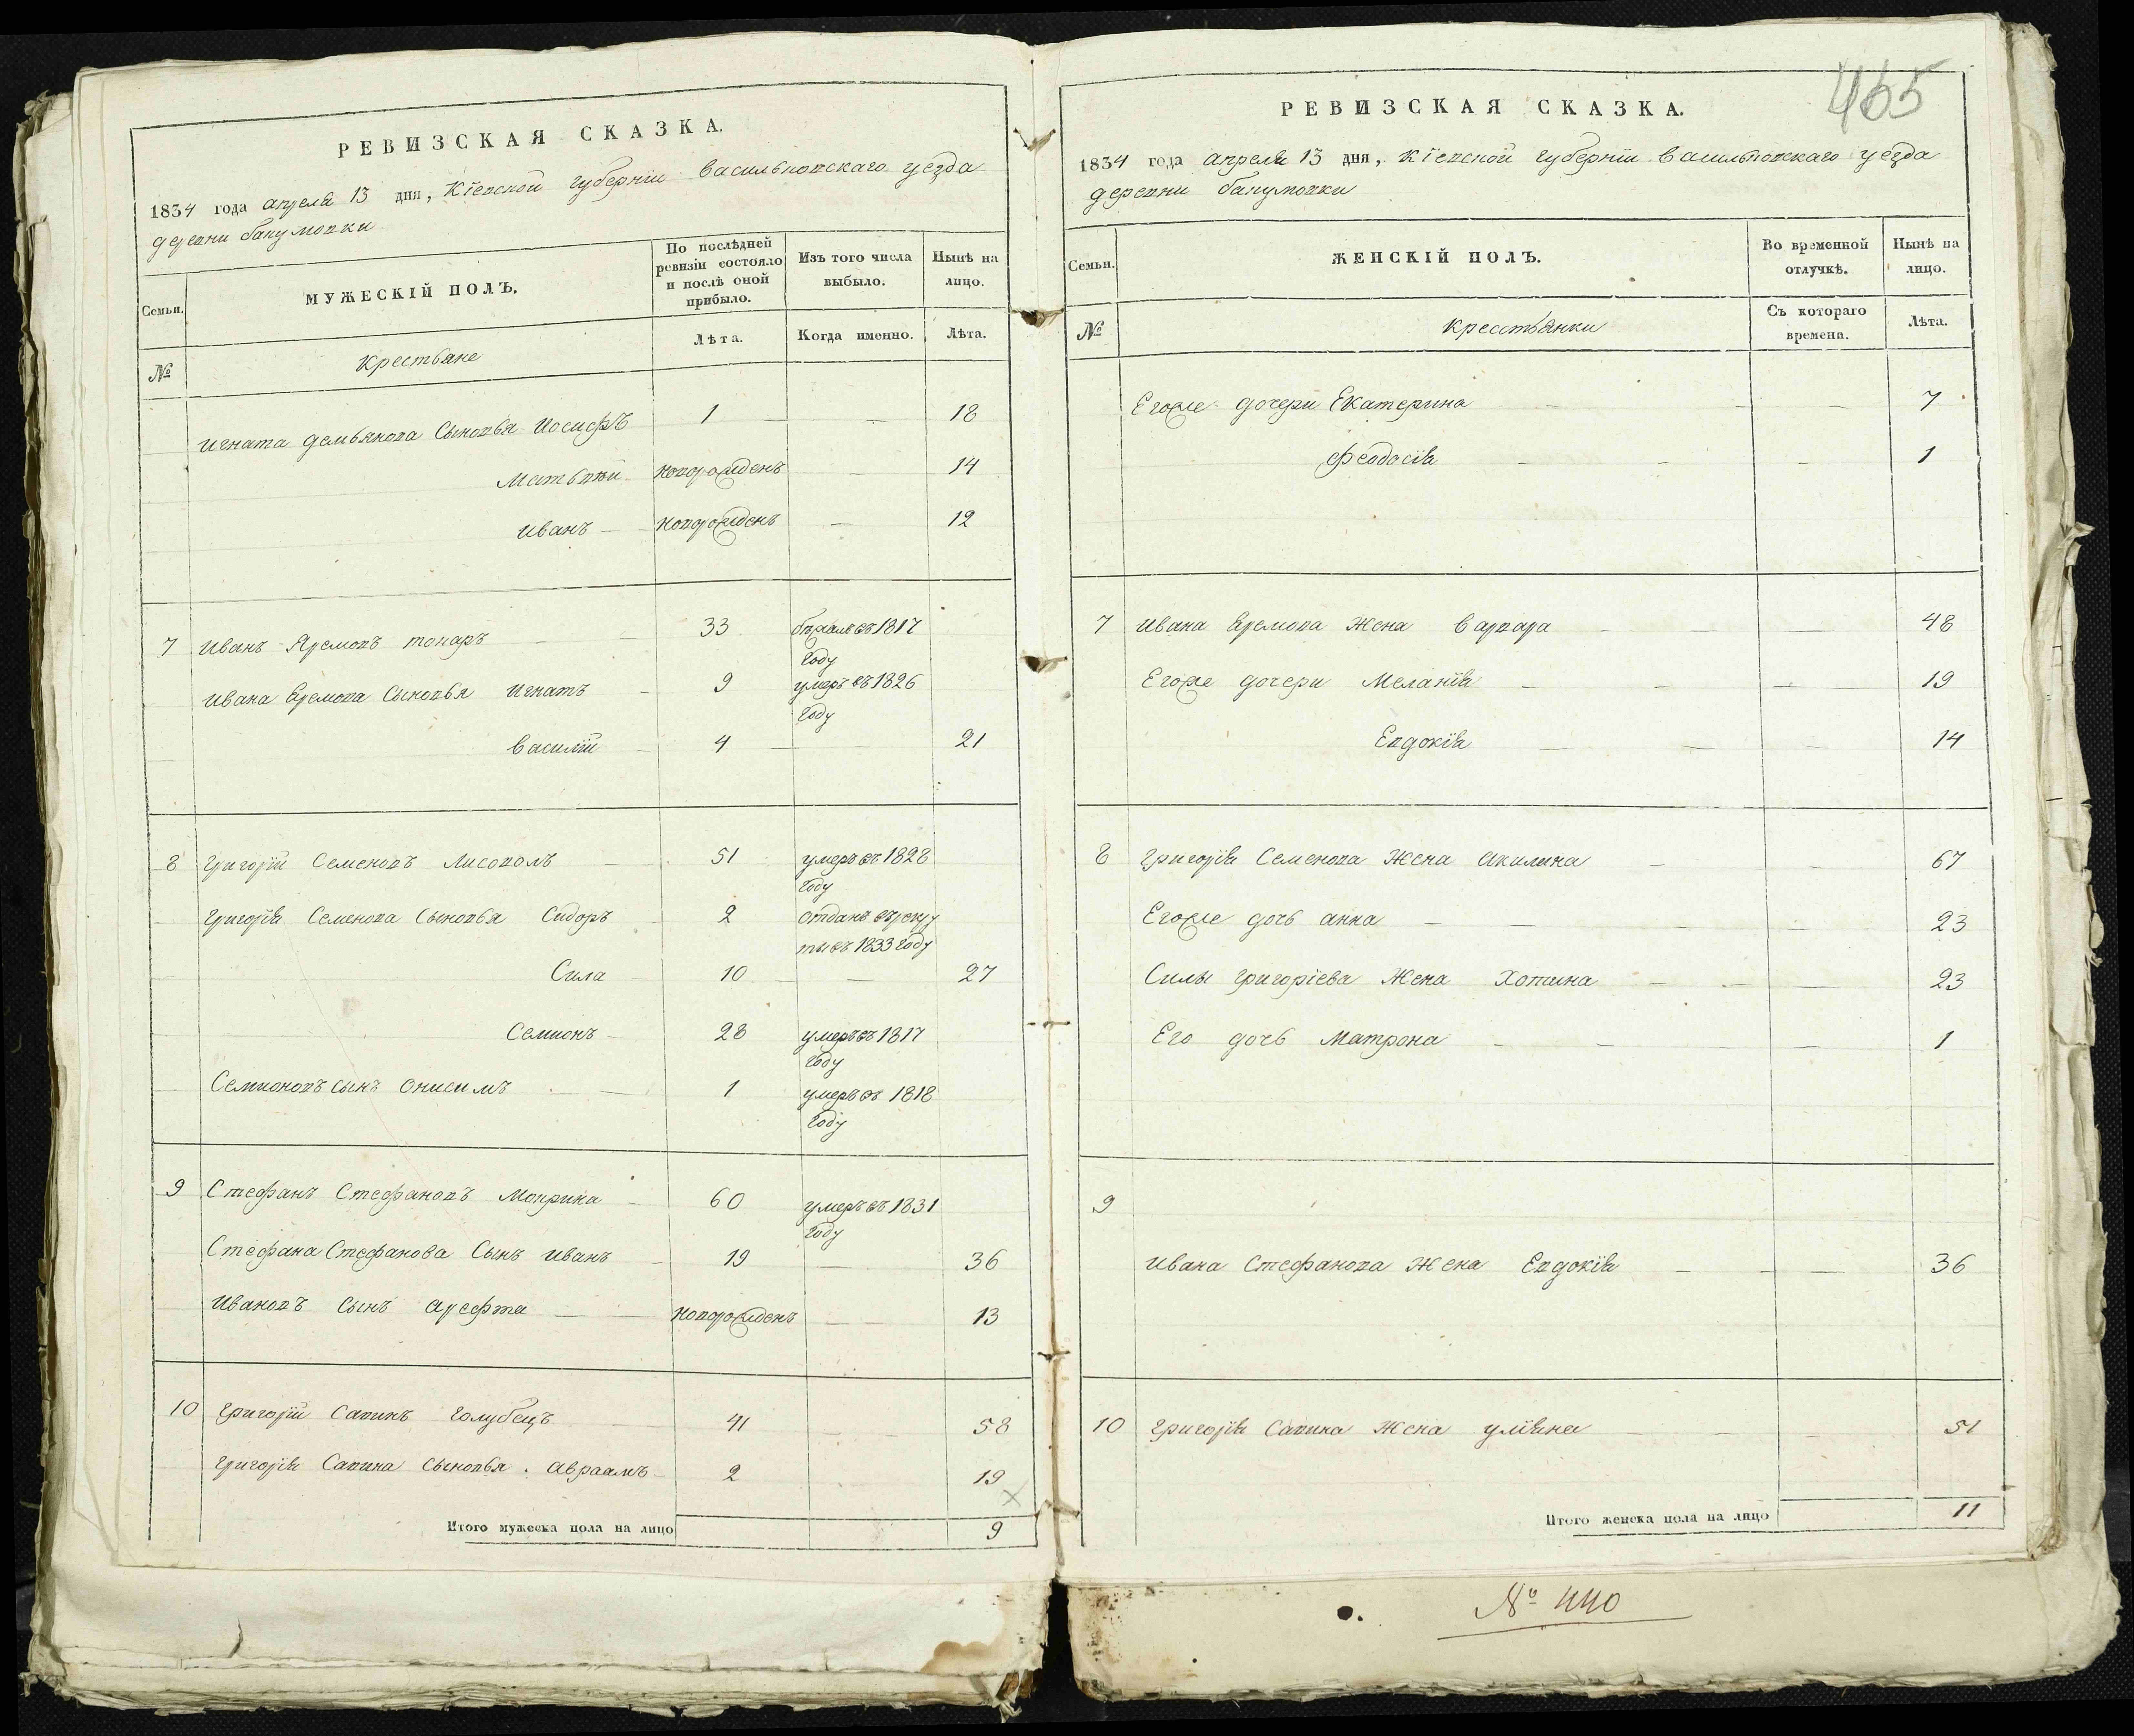 РЕВИЗСКАЯ СКАЗКА.
1834 года апреля 13 дня, Кіевской губерніи васильковскаго уезда
деревни
Семьи.
МУЖЕСКІЙ ПОЛЪ.
По послѣдней ревизіи состояло и послѣ оной прибыло.
Изъ того числа выбыло.
Нынѣ на лицо.
№
крестьяне
Лѣта.
Когда именно.
Лѣта.
игната демьянова Сыновья Иосифъ 1 — — 18
Матьвѣй новорожденъ — 14
иванъ — новорожденъ — 12
7 иванъ Яремовъ 33 бѣжалъ въ 1817
году
ивана Еремова Сыновья Игнатъ — 9 умеръ въ 1826
году
василій — 4 — 21
8 григорій Семеновъ Лисоволъ — 51 умеръ въ 1828
году
григорія Семенова Сыновья Сидоръ — 2 отданъ въ рекру
ты въ 1833 году
Сила 10 — 27
Семионъ — 28 умеръ въ 1817
году
Семионовъ сынъ Онисимъ — 1 умеръ въ 1818
году
9 Стефанъ Стефановъ Мокрина — 60 умеръ въ 1831
году
Стефана Стефанова Сынъ иванъ — 19 — 36
ивановъ Сынъ Арефта — новорожденъ — 13
10 григорій Савинъ голубецъ 41 — 58
григорія Савина Сыновья . Авраамъ 2 19
Итого мужеска пола на лицо 9
465
РЕВИЗСКАЯ СКАЗКА.
1834 года апреля 13 дня, Кіевской губерніи васильковскаго уезда
деревни
Семьи.
ЖЕНСКІЙ ПОЛЪ.
Во временной отлучкѣ.
Нынѣ на лицо.
№
крестьянки
Съ котораго времена.
Лѣта.
Егоже дочери Екатерина — — 7
Феодосія — — 1
7 ивана Еремова Жена варвара — — 48
Егоже дочери Меланія — — 19
Евдокія — — 14
8 григорія Семенова Жена акилина — — 67
Егоже дочь анна — — 23
Силы григоріева Жена Хотина — — 23
Его дочь Матрона — — 1
9
ивана Стефанова Жена Евдокія — — 36
10 григорія Савина Жена уліяна — — 51
Итого женска пола на лицо 11
№ 440